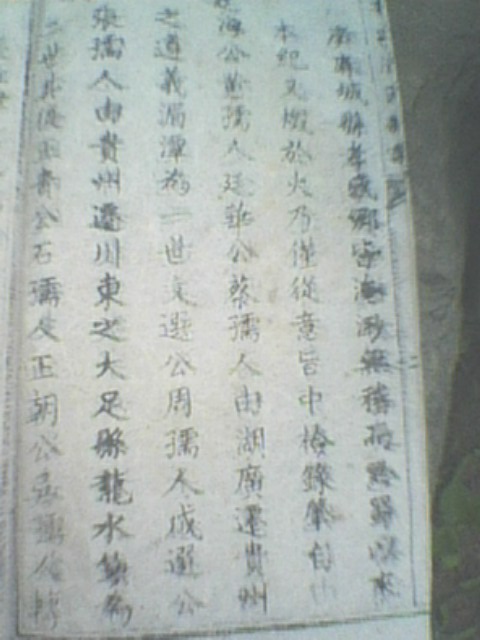 城縣孝感鄉皆渺無稽而黔蜀以來
本紀又燬於火乃僅從意旨中拾錄
海公黃孺人廷雜公蔡孺人由湖廣遷貴州
之遵義湄潭為一世文選公周孺人成選公
張孺人由貴州遷川東之大足縣龍水鎮為
二世其後正壽公石孺人正朝公孺人